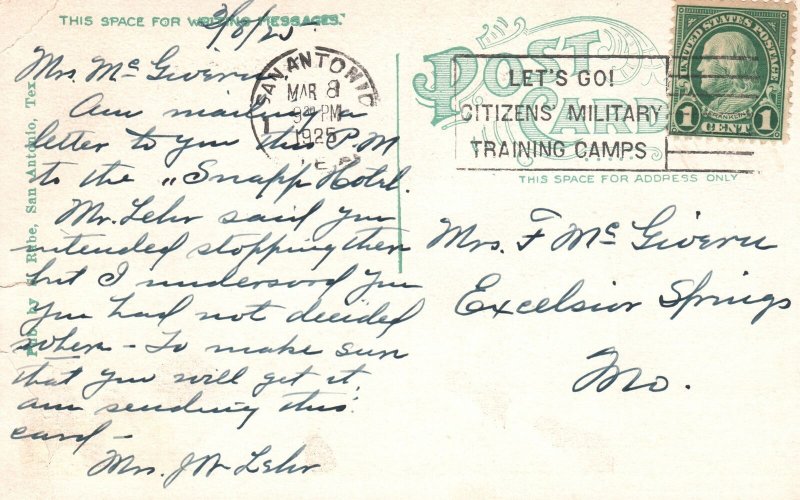 THIS SPACE FOR WRITING MESSAGES.
3/8/25
Mrs. McGivern
Am mailing a
letter to you this P.M
to the "Snapp Hotel.
Mr. Lehr said you
intended stopping there
but I undersord you
you had not decided
where - To make sure
that you will get it,
am sending this
card -
Mrs. J W Lehr
Pub. by Rabe, San Antonio, Tex.
SAN ANTONIO
MAR 8
PM
1925
POST CARD
LET'S GO!
CITIZENS' MILITARY
TRAINING CAMPS
UNITED STATES POSTAGE
FRANKLIN
1 CENT 1
THIS SPACE FOR ADDRESS ONLY
Mrs. F McGivern
Excelsior Springs
Mo.